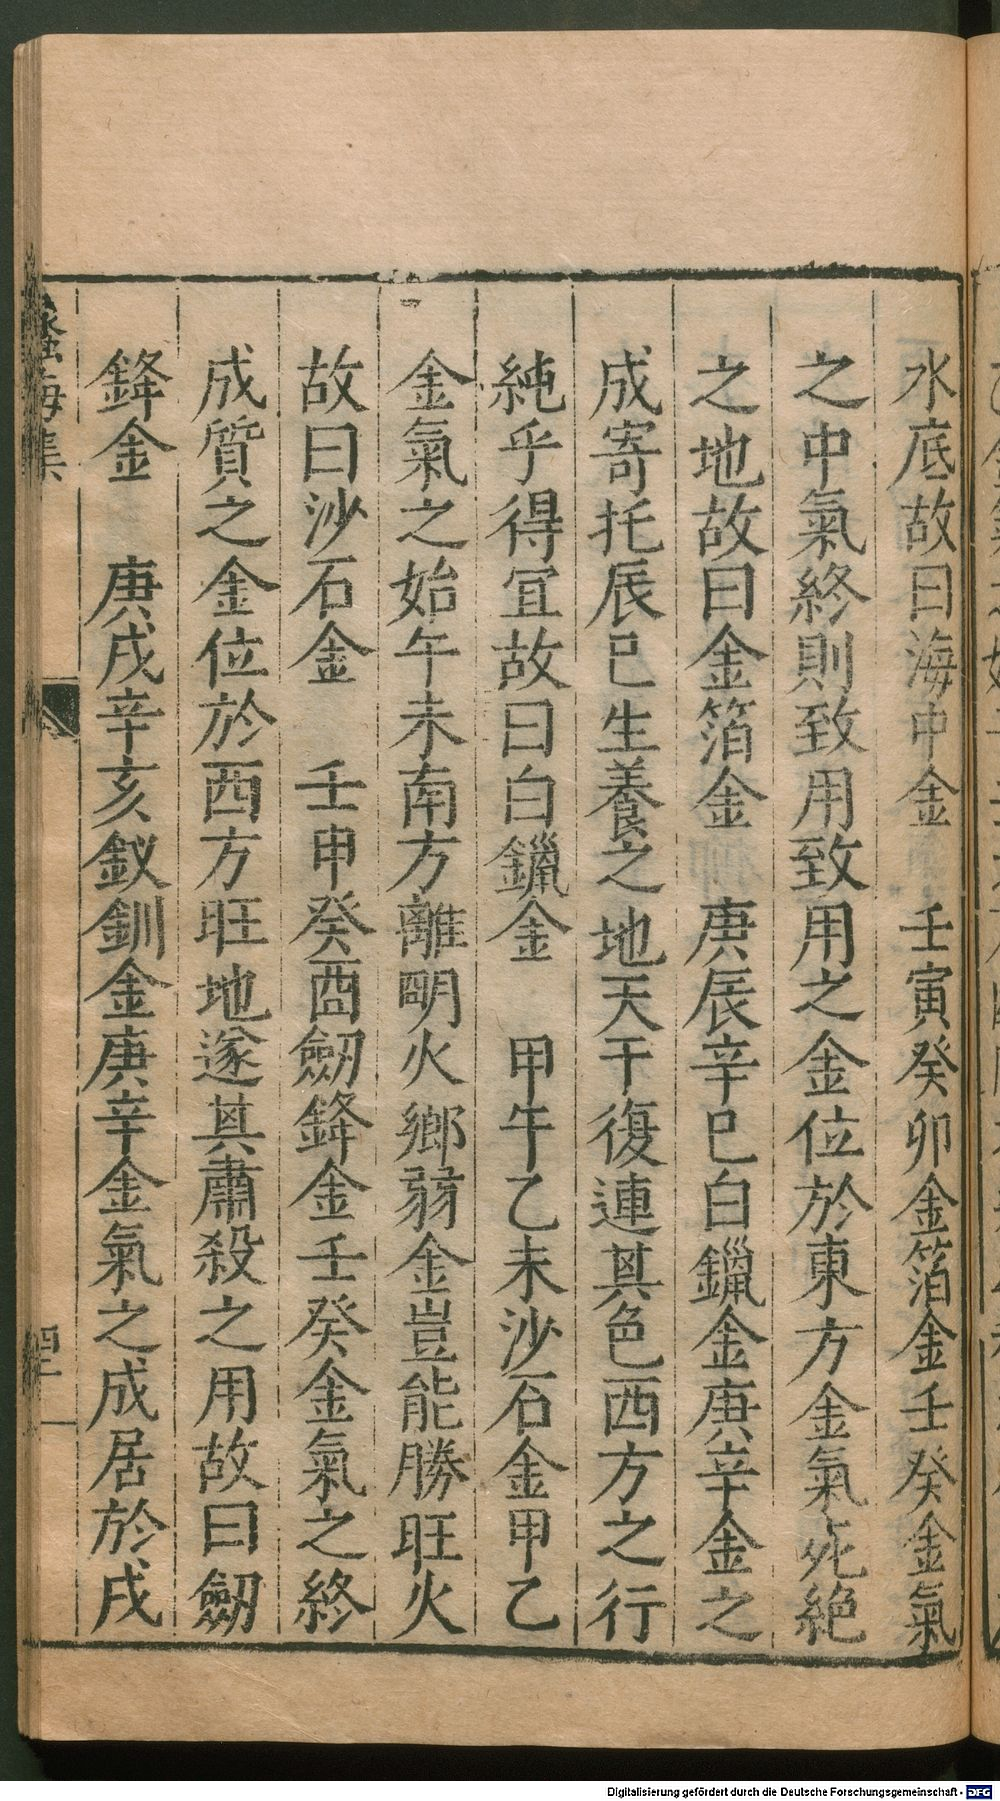 水底故曰海中金　壬寅癸卯金箔金壬癸金氣
之中氣終則致用致用之金位於東方金氣死絕
之地故曰金箔金　庚辰辛巳白鑞金庚辛金之
成寄托辰巳生養之地天干復連其色西方之行
純乎得宜故曰白鑞金　甲午乙未沙石金甲乙
金氣之始午未南方離明火鄉弱金豈能勝旺火
故曰沙石金　壬申癸酉劒鋒金壬癸金氣之終
成質之金位於西方旺地遂其肅殺之用故曰劒
鋒金　庚戌辛亥釵釧金庚辛金氣之成居於戌
蠡海集
Digitalisierung gefördert durch die Deutsche Forschungsgemeinschaft - DFG